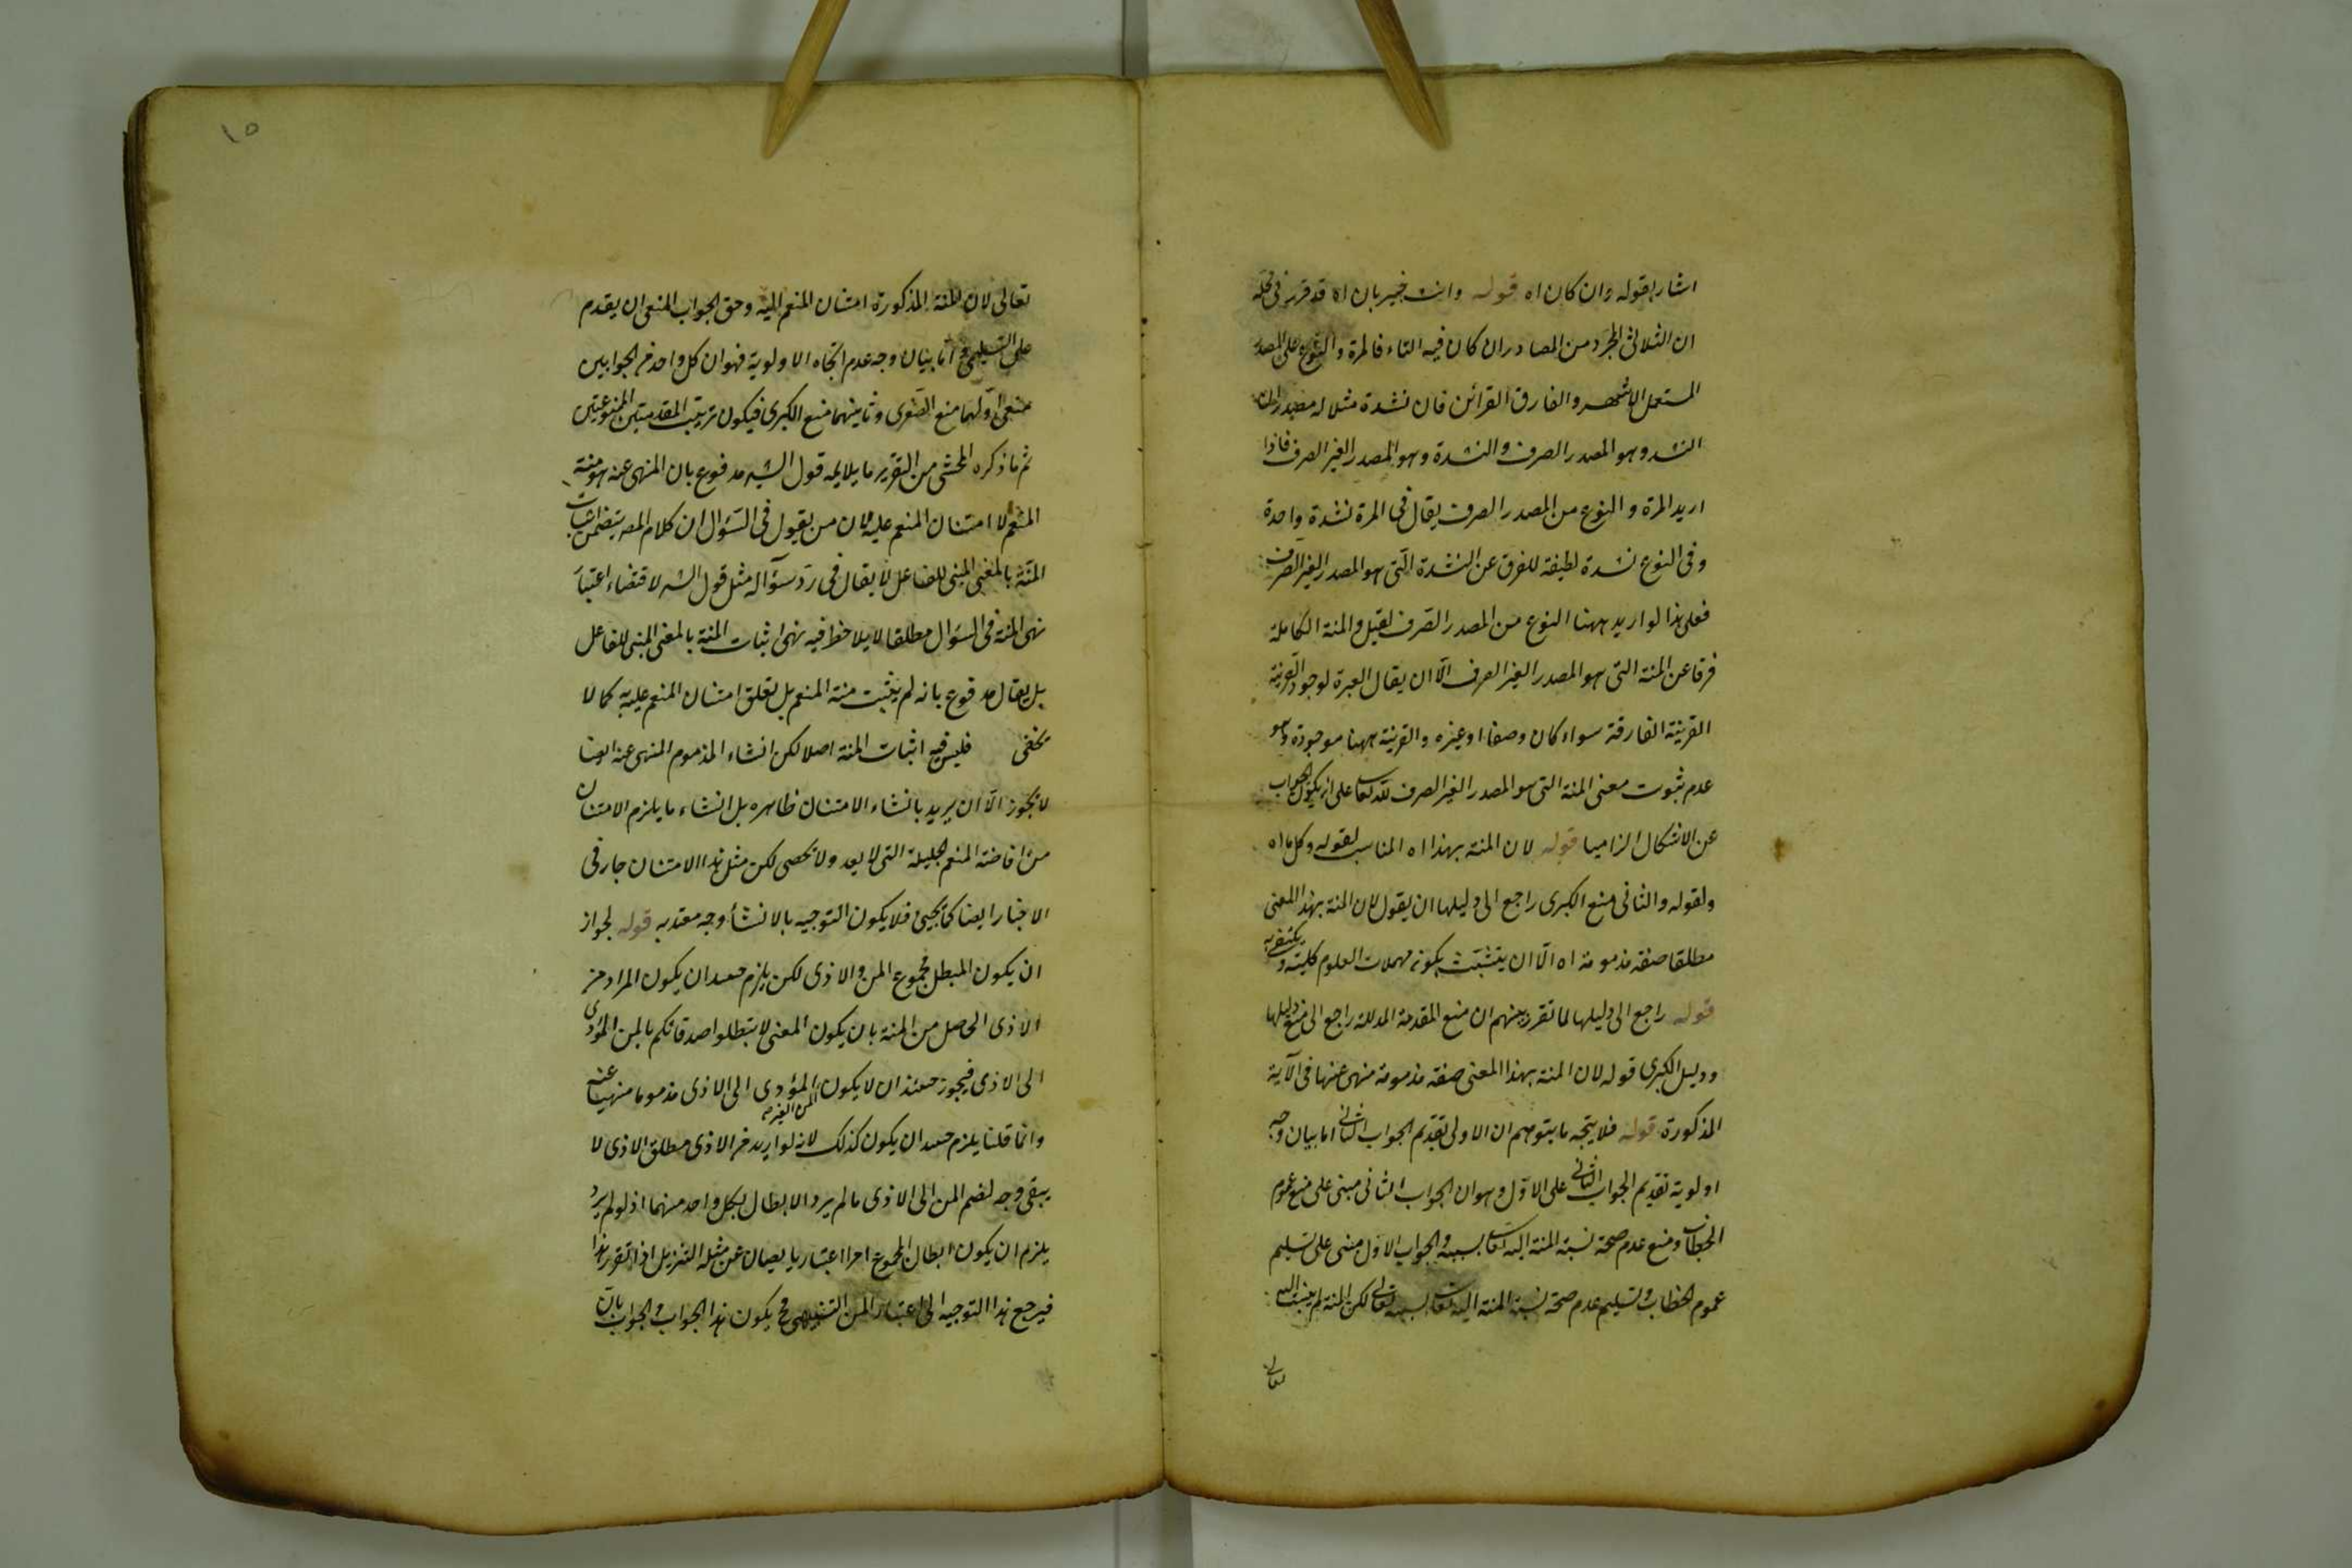 اشار بقوله وان كان اه قوله وانت خبير بان اه قد قرر في محله
ان الثلاثي المجرد من المصادر ان كان فيه التاء فالمرة والنوع على المصدر
المستعمل الاشهر والفارق القرائن فان نشدة مثلا له مصدران
النشد وهو المصدر الصرف والنشدة وهو المصدر الغير الصرف فاذا
اريد المرة والنوع من المصدر الصرف يقال في المرة نشدة واحدة
وفي النوع نشدة لطيفة للفرق عن النشدة التي هو المصدر الغير الصرف
فعلى هذا لو اريد ههنا النوع من المصدر الصرف لقيل والمنة الكاملة
فرقا عن المنة التي هو المصدر الغير الصرف الا ان يقال العبرة لوجود القرينة
القرينة الفارقة سواء كان وصفا او غيره والقرينة ههنا موجودة وهو
عدم ثبوت معنى المنة التي هو المصدر الغير الصرف لله تعالى على ان يكون الجواب
عن الاشكال الزاميا قوله لان المنة بهذا اه المناسب لقوله وكل ما اه
ولقوله والثاني منع الكبرى راجع الى دليلها ان يقول لان المنة بهذا المعنى
مطلقا صفة مذمومة اه الا ان يتشبث بكونه مهملات العلوم كلية و
قوله راجع الى دليلها لما تقرر بينهم ان منع المقدمة المدللة راجع الى منع دليلها
ودليل الكبرى قوله لان المنة بهذا المعنى صفة مذمومة منهى عنها في الآية
المذكورة قوله فلا يتجه ما يتوهم ان الاولى تقديم الجواب الثاني اما بيان وجه
اولوية تقديم الجواب الثاني على الاول وهو ان الجواب الثاني مبنى على منع عموم
الخطاب ومنع عدم صحة نسبة المنة اليه تعالى والجواب الاول مبنى على تسليم
عموم الخطاب وتسليم عدم صحة نسبة المنة اليه تعالى لكن المنة لم
تعالى
١٥
تعالى لان المنة المذكورة امتنان المنعم اليه وحق الجواب المنعى ان يقدم
على التسليمى واما بيان وجه عدم اتجاه الاولوية فهو ان كل واحد من الجوابين
منعى اولهما منع الصغرى وثانيهما منع الكبرى فيكون ترتيب المقدمتين الممنوعتين
ثم ما ذكره المحشى من التقرير ما يلايمه قول الشه مدفوع بان المنهى عنه هو منة
المنعم لا امتنان المنعم عليه لان من يقول في السؤال ان كلام المصه يتضمن اثبات
المنة بالمعنى المبنى للفاعل لا يقال في رد سؤاله مثل قول الشه لاقتضاء اعتبار
نهى المنة في السؤال مطلقا لا يلاحظ فيه نهى اثبات المنة بالمعنى المبنى للفاعل
بل يقال مدفوع بانه لم يثبت منة المنعم بل تعلق امتنان المنعم عليه كما لا
يخفى فليس فيه اثبات المنة اصلا لكن انشاء المذموم المنهى عنه ايضا
لا يجوز الا ان يريد بانشاء الامتنان ظاهره بل انشاء ما يلزم الامتنان
من افاضة المنعم الجليلة التي لا يعد ولا يحصى لكن مثل هذا الامتنان جار في
الاخبار ايضا كما يجيئ فلا يكون التوجيه بالانشاء وجه معتد به قوله لجواز
ان يكون المبطل مجموع المن والاذى لكن يلزم حينئذ ان يكون المراد من
الاذى الحاصل من المنة بان يكون المعنى لا تبطلوا صدقاتكم بالمن المؤدى
الى الاذى فيجوز حينئذ ان لا يكون المن الغير المؤدى الى الاذى مذموما منهيا عنه
وانما قلنا يلزم حينئذ ان يكون كذلك لانه لو اريد من الاذى مطلق الاذى لا
يبقى وجه لضم المن الى الاذى ما لم يرد الابطال بكل واحد منهما اذ لو لم يرد
يلزم ان يكون ابطال المجموع امرا اعتباريا يصان عن مثله التنزيل اذا تقرر هذا
فيرجع هذا التوجيه الى اعتبار المن يكون هذا الجواب والجواب بان